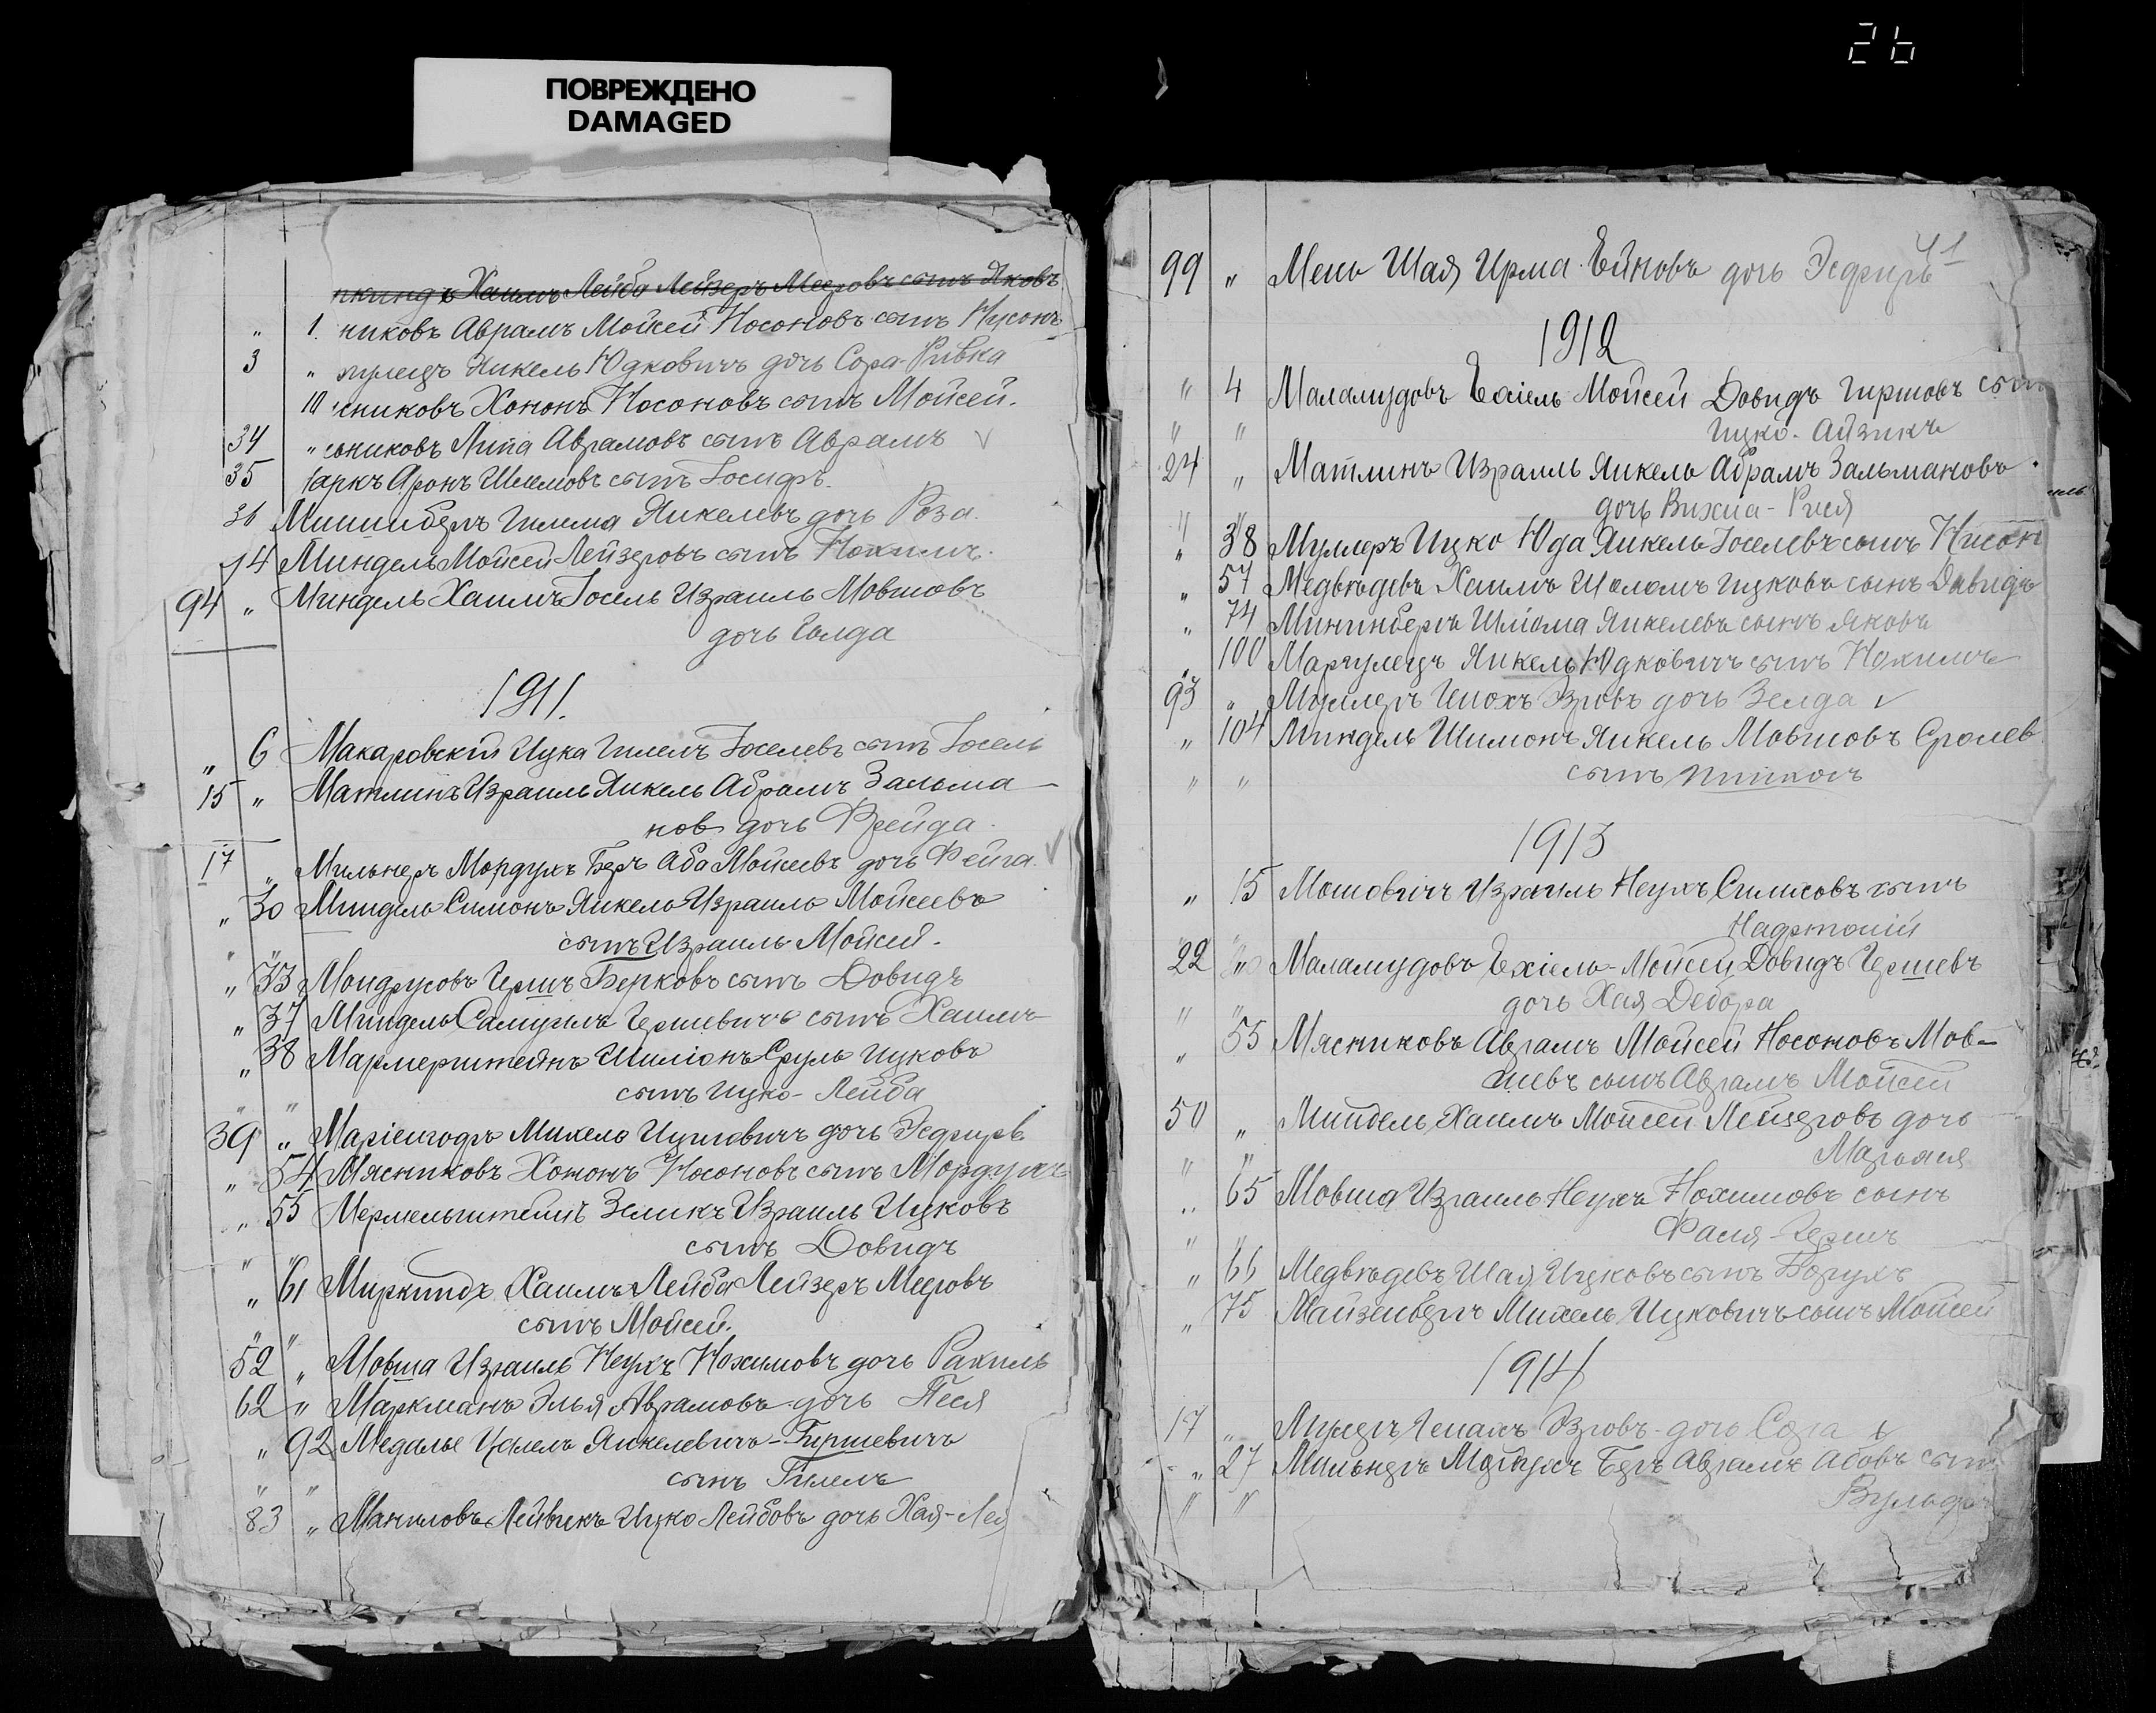 26
ПОВРЕЖДЕНО
DAMAGED
Хаимъ Лейба Лейзеръ Мееровъ сынъ Яковъ
„ 1. никовъ Аврамъ Мойсей Носоновъ сынъ Нусонъ
3 „ Янкель Юдковичъ дочь Сора-Ривка
10 сниковъ Хононъ Носоновъ сынъ Мойсей.
34 „ Липа Аврамовъ сынъ Аврамъ
35 Аронъ Шлемовъ сынъ Іосифъ.
36 Шлема Янкелевъ дочь Роза.
14 Миндель Мойсей Лейзеровъ сынъ Нохимъ.
94 „ Миндель Хаимъ Іосель Израиль Мовшовъ
дочь Голда
1911.
„ 6 Макаровскій Ицка Гилелъ Іоселевъ сынъ Іосель
15 „ Матлинъ Израиль Янкель Абрамъ Зальма-
новъ дочь Фрейда.
17 „ Мильнеръ Мордухъ Беръ Аба Мойсеевъ дочь Фейга.
„ 30 Миндель Симонъ Янкель Израиль Мойсеевъ
„ „ сынъ Израиль Мойсей.
„ 33 Мондрусовъ Гершъ Берковъ сынъ Довидъ
„ 37 Миндель Самуилъ Гершевичъ сынъ Хаимъ
„ 38 Мармерштейнъ Шиміонъ Сруль Ицковъ
„ „ сынъ Ицко-Лейба
39 „ Маріенгофъ Михель Ицковичъ дочь Эсфирь
„ 54 Мясниковъ Хононъ Носоновъ сынъ Мордухъ
„ 55 Мермельштейнъ Зеликъ Израиль Ицковъ
„ „ сынъ Довидъ
„ 61 Миркиндъ Хаимъ Лейба Лейзеръ Мееровъ
„ „ сынъ Мойсей.
52 „ Мовша Израиль Неухъ Нохимовъ дочь Рахиль
62 „ Маркманъ Элья Аврамовъ дочь Песя
„ 92 Медалье Янкелевичъ-Гиршевичъ
„ „ сынъ Гилелъ
83 „ Маниловъ Лейвикъ Ицко Лейбовъ дочь Хая-Лея
41
99 „ Мень Шая Ирма Ейновъ дочь Эсфирь
1912
„ 4 Маламудовъ Ехіель Мойсей Довидъ Гиршовъ сынъ
„ „ Ицко-Айзикъ
24 „ Матлинъ Израиль Янкель Абрамъ Зальмановъ
„ „ дочь
„ 38 Муллеръ Ицко Юда Янкель Іоселевъ сынъ Нисон
„ 57 Медвѣдевъ Хаимъ Шоломъ Ицковъ сынъ Давидъ
„ 74 Минимбергъ Шліома Янкелевъ сынъ Яковъ
„ 100 Маргулецъ Янкель Юдковичъ сынъ Нохимъ
93 „ Муллеръ Энохъ дочь Зелда
„ 104 Миндель Шимонъ Янкель Мовшовъ Сролев
„ „ сынъ
1913
„ 15 Мошовичъ Израиль Неухъ Симховъ сынъ
„ „ Нафтолій
22 „ Маламудовъ Ехіель-Мойсей Довидъ Гершевъ
„ „ дочь Хая Дебора
„ 55 Мясниковъ Аврамъ Мойсей Носоновъ-Мов-
шевъ сынъ Аврамъ Мойсей
50 „ Миндель Хаимъ Мойсей Лейзеровъ дочь
„ „ Марьяся
„ 65 Мовша Израиль Неухъ Нохимовъ сынъ
„ „ Файя-Гершъ
„ 66 Медвѣдевъ Шая Ицковъ сынъ Борухъ
„ 75 Майзенбергъ Михель Ицковичъ сынъ Мойсей
1914
17 „ дочь Сора
„ 27 Мильнеръ Мордухъ Беръ Аврамъ Абовъ сынъ
„ „ Вульф